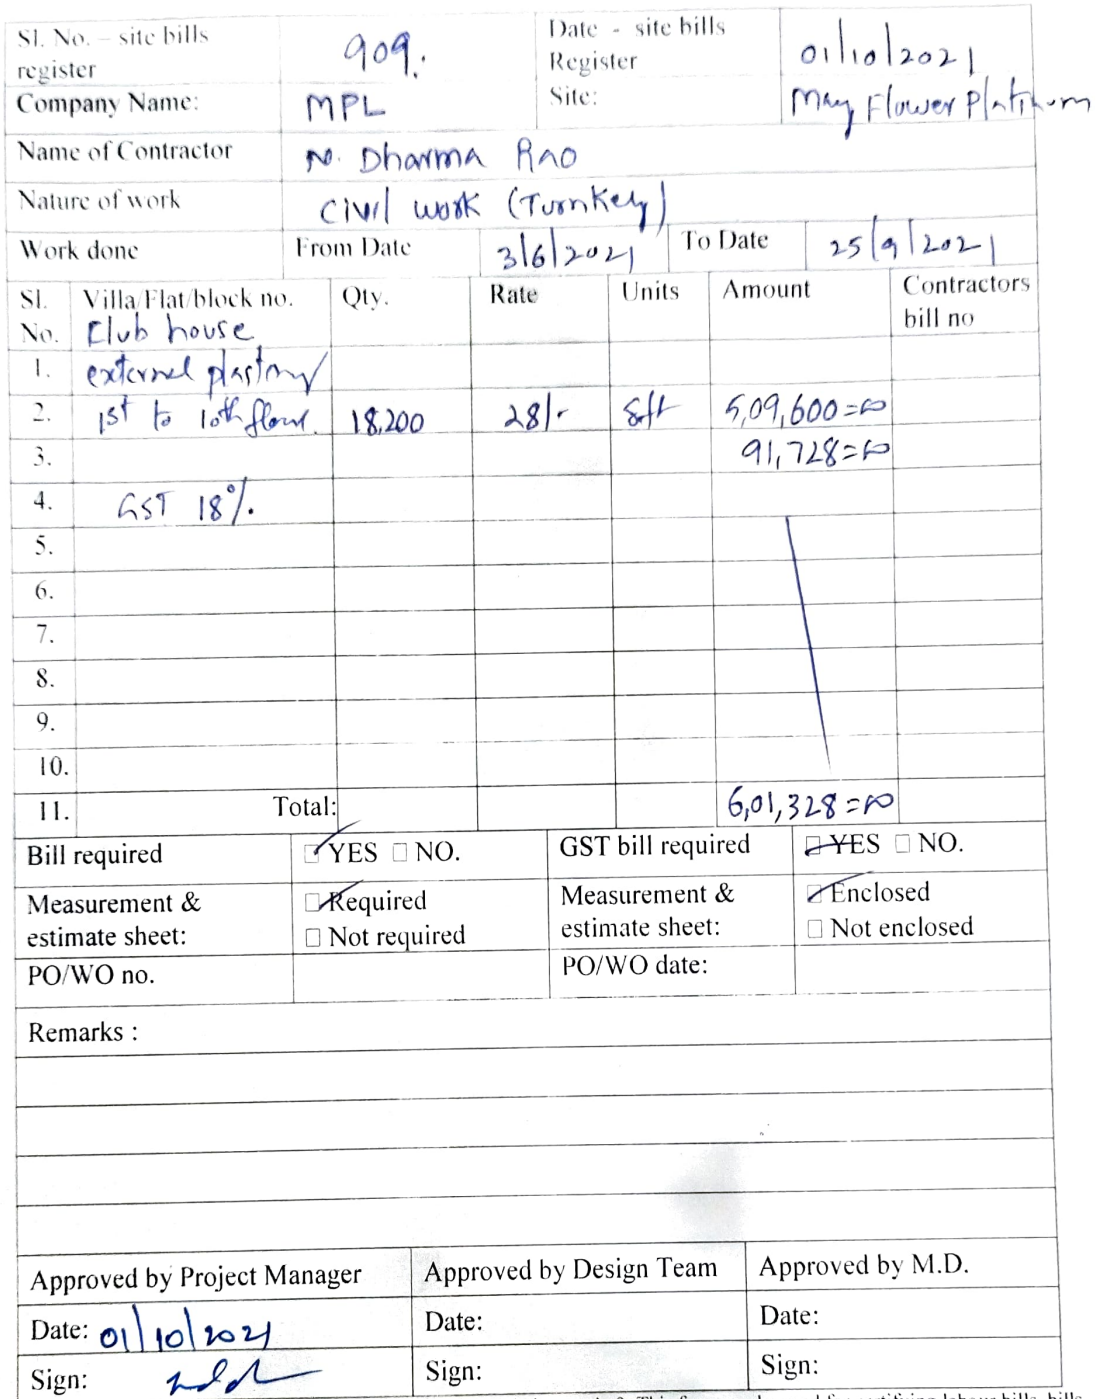 Sl. No. – site bills register 909. Date - site bills Register 01/10/2021
Company Name: MPL Site: May Flower Platinum
Name of Contractor N. Dharma Rao
Nature of work Civil work (Turnkey)
Work done From Date 3/6/2021 To Date 25/9/2021
Sl. No. Villa/Flat/block no. Qty. Rate Units Amount Contractors bill no
Club house
1. external plastring
2. 1st to 10th floor. 18,200 28/- Sft 5,09,600=00
3. 91,728=00
4. GST 18%.
5.
6.
7.
8.
9.
10.
11. Total: 6,01,328=00
Bill required YES NO. GST bill required YES NO.
Measurement & estimate sheet: Required Not required Measurement & estimate sheet: Enclosed Not enclosed
PO/WO no. PO/WO date:
Remarks :
Approved by Project Manager Approved by Design Team Approved by M.D.
Date: 01/10/2021 Date: Date:
Sign: Sign: Sign: